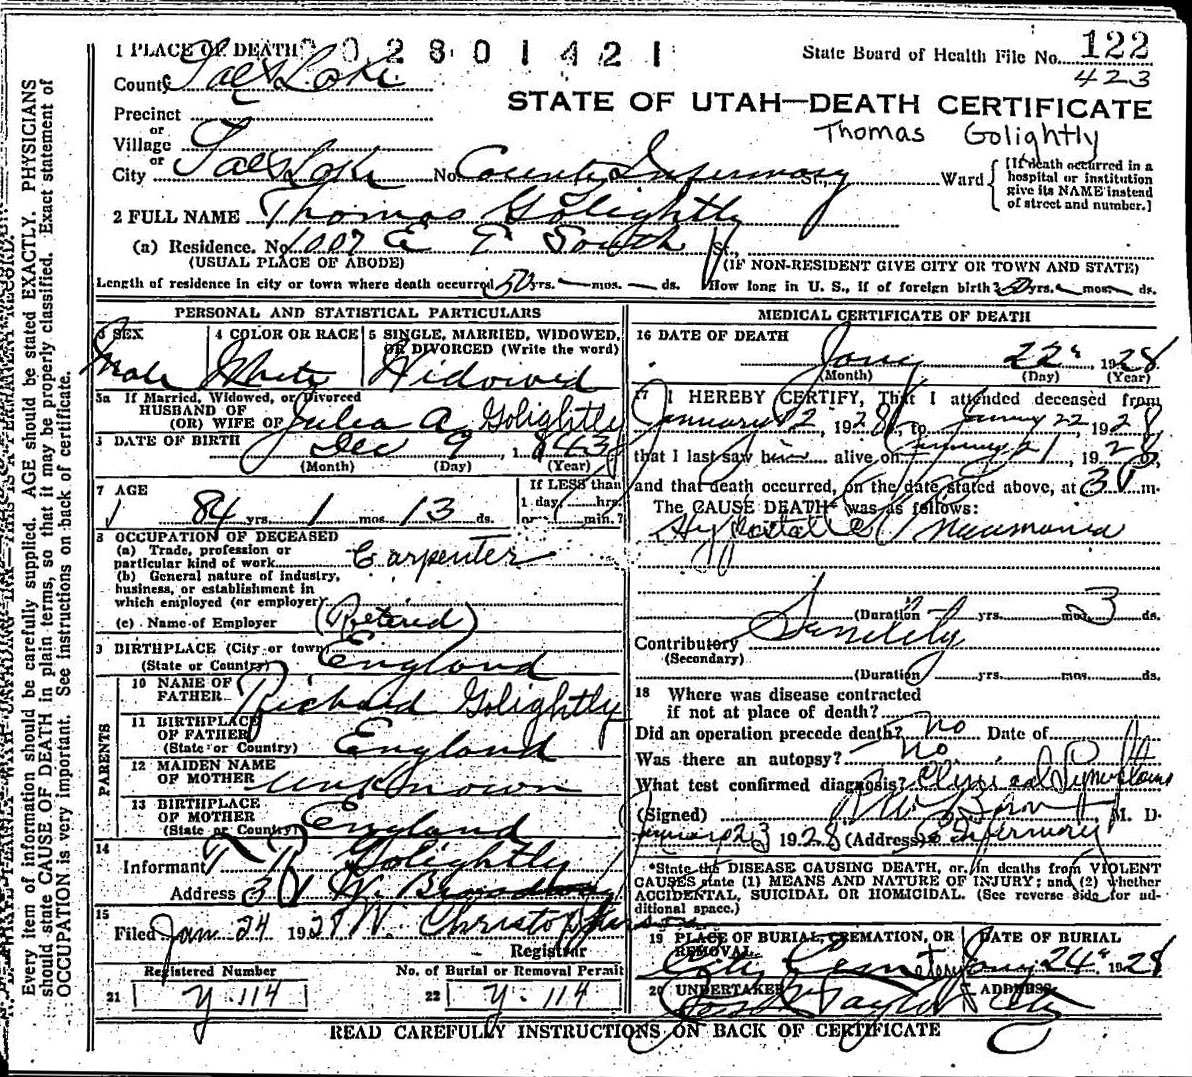 1 PLACE OF DEATH 002801421
State Board of Health File No. 122
423
County Salt Lake
STATE OF UTAH—DEATH CERTIFICATE
Thomas Golightly
Precinct
or
Village
or
City Salt Lake No. County Infirmary St., Ward
[If death occurred in a hospital or institution give its NAME instead of street and number.]
2 FULL NAME Thomas Golightly
(a) Residence. No. 1007 E South St.,
(USUAL PLACE OF ABODE) (IF NON-RESIDENT GIVE CITY OR TOWN AND STATE)
Length of residence in city or town where death occurred 50 yrs. — mos. — ds. How long in U. S., if of foreign birth? 50 yrs. — mos. — ds.
PERSONAL AND STATISTICAL PARTICULARS
3 SEX 4 COLOR OR RACE 5 SINGLE, MARRIED, WIDOWED, OR DIVORCED (Write the word)
Male White Widowed
5a If Married, Widowed, or Divorced
HUSBAND OF
(OR) WIFE OF Julia A Golightly
DATE OF BIRTH Dec 9, 1843
(Month) (Day) (Year)
7 AGE If LESS than
1 day, hrs.
84 yrs. 1 mos. 13 ds. or min.?
8 OCCUPATION OF DECEASED
(a) Trade, profession or
particular kind of work Carpenter
(b) General nature of industry,
business, or establishment in
which employed (or employer)
(Retired)
(c) Name of Employer
9 BIRTHPLACE (City or town)
(State or Country) England
PARENTS
10 NAME OF
FATHER Richard Golightly
11 BIRTHPLACE
OF FATHER
(State or Country) England
12 MAIDEN NAME
OF MOTHER unknown
13 BIRTHPLACE
OF MOTHER
(State or Country) England
14
Informant Golightly
Address W. Broadway
15
Filed Jan 24 1928 W. Christopherson
Registrar
Registered Number No. of Burial or Removal Permit
21 Y-114 22 Y-114
MEDICAL CERTIFICATE OF DEATH
16 DATE OF DEATH
Jany 22 1928
(Month) (Day) (Year)
17 I HEREBY CERTIFY, That I attended deceased from
January 12, 1928, to January 22 1928
that I last saw him alive on January 21, 1928,
and that death occurred, on the date stated above, at 3 m.
The CAUSE DEATH* was as follows:
Hypostatic Pneumonia
(Duration) yrs. mos. 3 ds.
Contributory Senility
(Secondary)
(Duration) yrs. mos. ds.
18 Where was disease contracted
if not at place of death?
Did an operation precede death? No Date of
Was there an autopsy? No
What test confirmed diagnosis? Clinical Symptoms
(Signed) M. D.
January 23 1928 (Address) Infirmary
*State the DISEASE CAUSING DEATH, or, in deaths from VIOLENT
CAUSES state (1) MEANS AND NATURE OF INJURY; and (2) whether
ACCIDENTAL, SUICIDAL OR HOMICIDAL. (See reverse side for ad-
ditional space.)
19 PLACE OF BURIAL, CREMATION, OR REMOVAL DATE OF BURIAL
City Cemetery Jany 24 1928
20 UNDERTAKER ADDRESS
Taylor City
READ CAREFULLY INSTRUCTIONS ON BACK OF CERTIFICATE
Every item of information should be carefully supplied. AGE should be stated EXACTLY. PHYSICIANS
should state CAUSE OF DEATH in plain terms, so that it may be properly classified. Exact statement of
OCCUPATION is very important. See instructions on back of certificate.